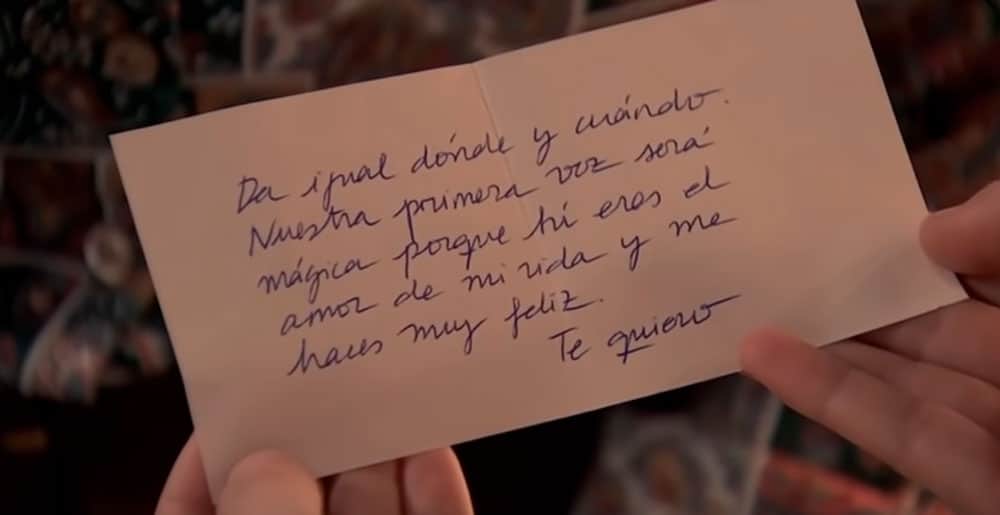 Da igual dónde y cuándo.
Nuestra primera vez será
mágica porque tú eres el
amor de mi vida y me
haces muy feliz.
Te quiero